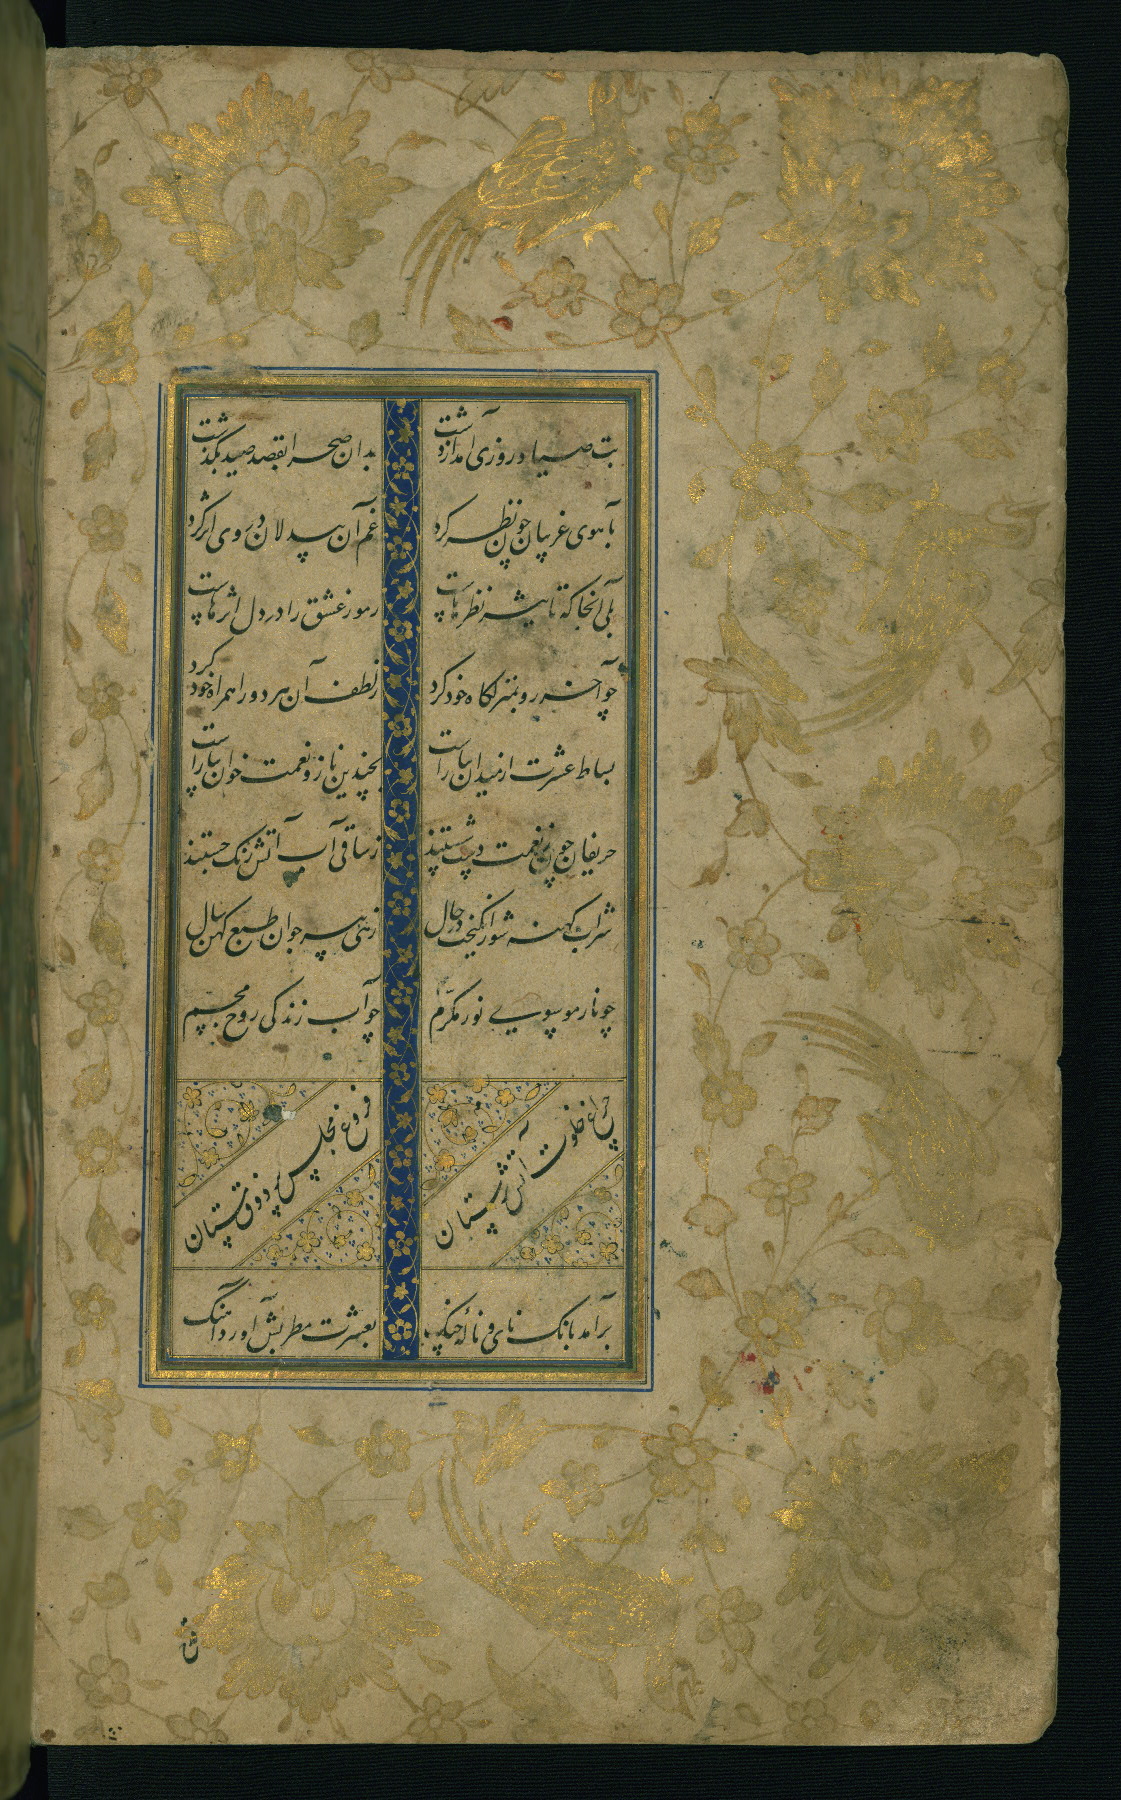 بت صیاد روزی آمد از دشت
بدان صحرا بقصد صید بگذشت
بآهوی غریبان چون نظر کرد
غم آن بیدلان در وی اثر کرد
بلی آنجا که تاثیر نظرهاست
رموز عشق را در دل اثرهاست
چو آخر رو بمنزلگاه خود کرد
ز لطف آن هر دو را همراه خود کرد
بساط عشرت از میدان بیاراست
بچندین ناز و نعمت خوان بیاراست
حریفان چون ز نعمت دست شستند
ز ساقی آب آتش رنگ جستند
شراب کهنه شور انگیخت در حال
زهی پیر جوان طبع کهن سال
چو نار موسوی نور مکرم
چو آب زندگی روح مجسم
چراغ خلوت آتش پرستان
فروغ مجلس پر ذوق مستان
برآمد بانک نای و ناله چنک
بعشرت مطربش آورد آهنک